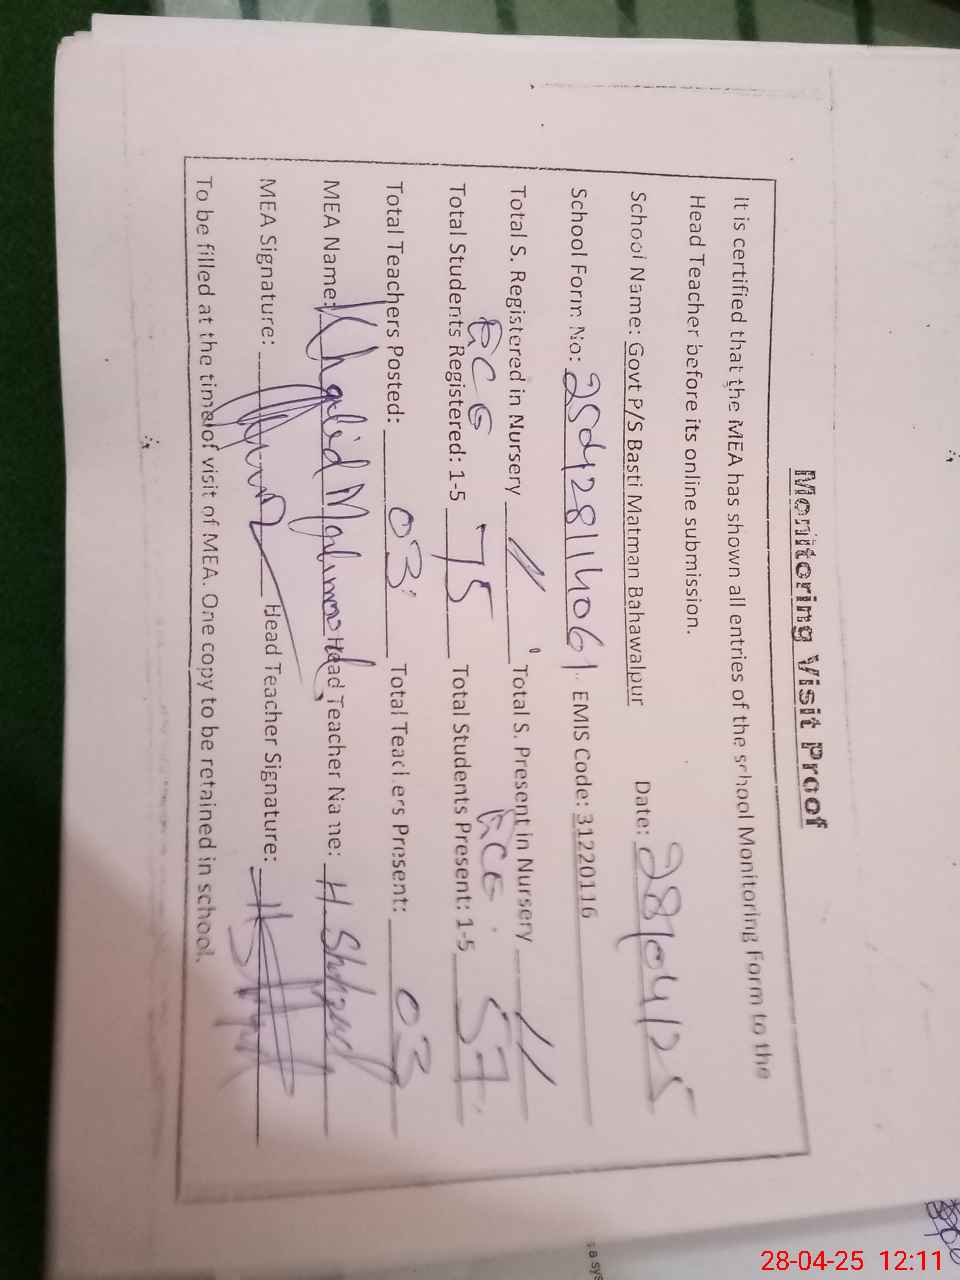 Monitoring Visit Proof
It is certified that the MEA has shown all entries of the school Monitoring Form to the
Head Teacher before its online submission.
School Name: Govt P/S Basti Matman Bahawalpur Date: 28/04/25
School Form No: EMIS Code: 31220116
Total S. Registered in Nursery Total S. Present in Nursery
ECE ECE
Total Students Registered: 1-5 75 Total Students Present: 1-5 57
Total Teachers Posted: 03 Total Teachers Present: 03
MEA Name: Khalid Mahmood Head Teacher Name: H.
MEA Signature: Head Teacher Signature:
To be filled at the time of visit of MEA. One copy to be retained in school.
28-04-25 12:11